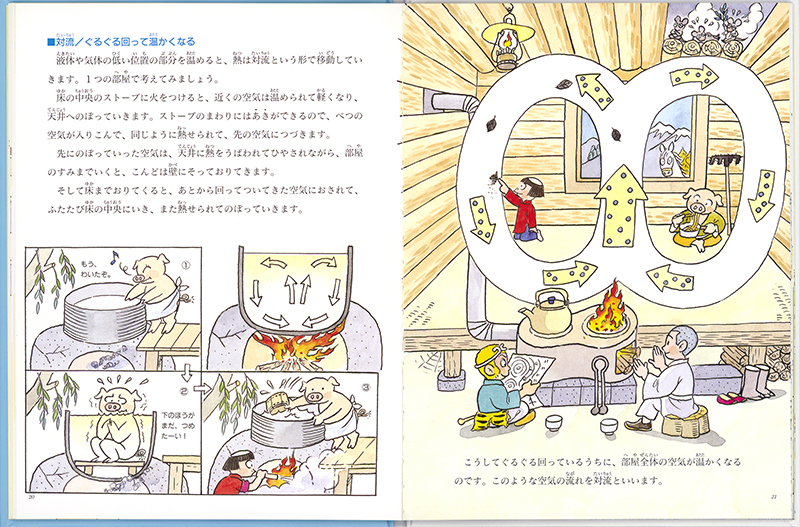 ■対流／ぐるぐる回って温かくなる
液体や気体の低い位置の部分を温めると、熱は対流という形で移動してい
きます。１つの部屋で考えてみましょう。
床の中央のストーブに火をつけると、近くの空気は温められて軽くなり、
天井へのぼっていきます。ストーブのまわりにはあきができるので、べつの
空気が入りこんで、同じように熱せられて、先の空気につづきます。
先にのぼっていった空気は、天井に熱をうばわれてひやされながら、部屋
のすみまでいくと、こんどは壁にそっておりてきます。
そして床までおりてくると、あとから回ってついてきた空気におされて、
ふたたび床の中央にいき、また熱せられてのぼっていきます。
もう、
わいたぞ。
①
②
下のほうが
まだ、つめ
たーい！
③
20
こうしてぐるぐる回っているうちに、部屋全体の空気が温かくなる
のです。このような空気の流れを対流といいます。
21